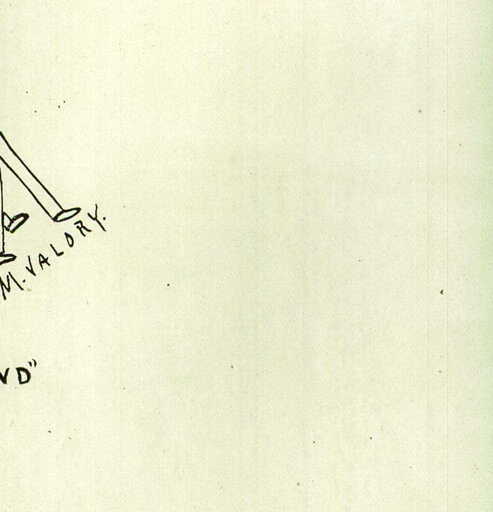 M. VALORY.
ND"